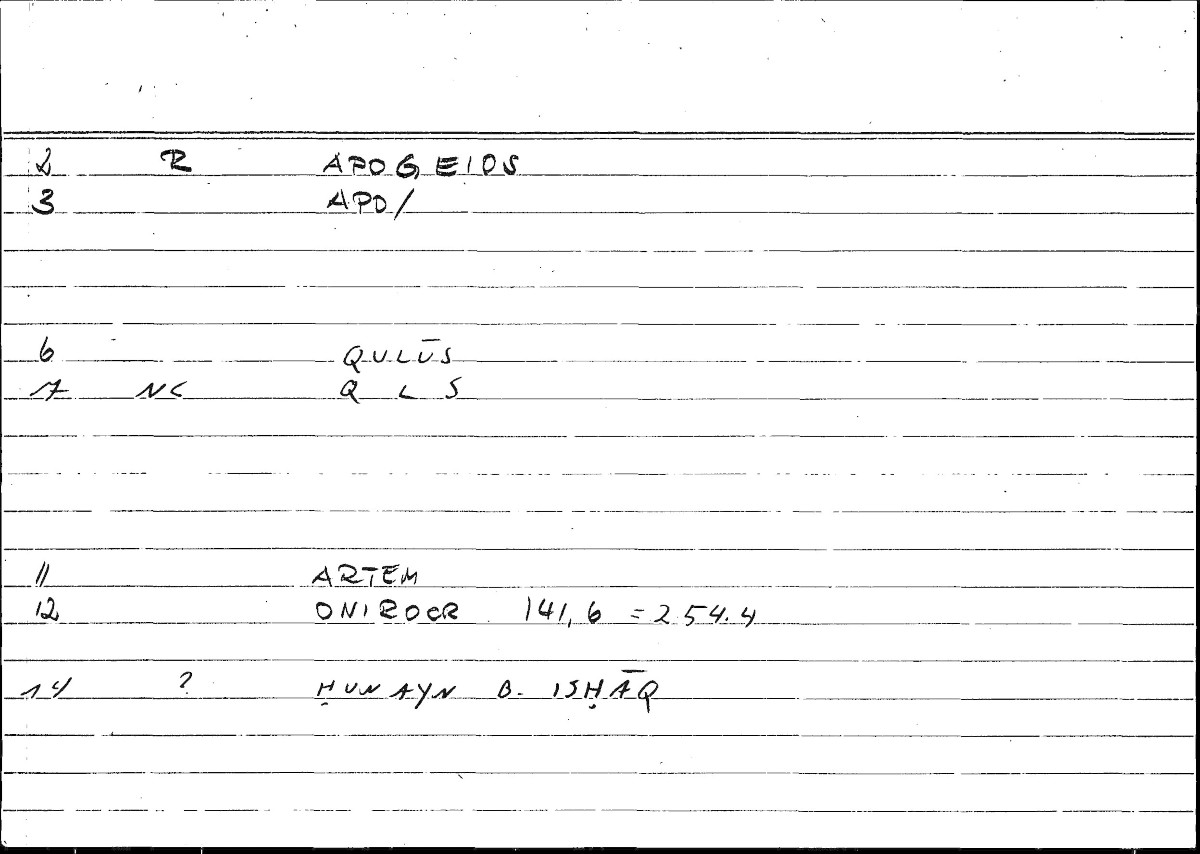 2 R APOGEIOS
3 APO/
6 QULŪS
7 NC Q L S
11 ARTEM
12 ONIROCR 141,6 = 254.4
14 ? ḤUNAYN B. ISḤĀQ